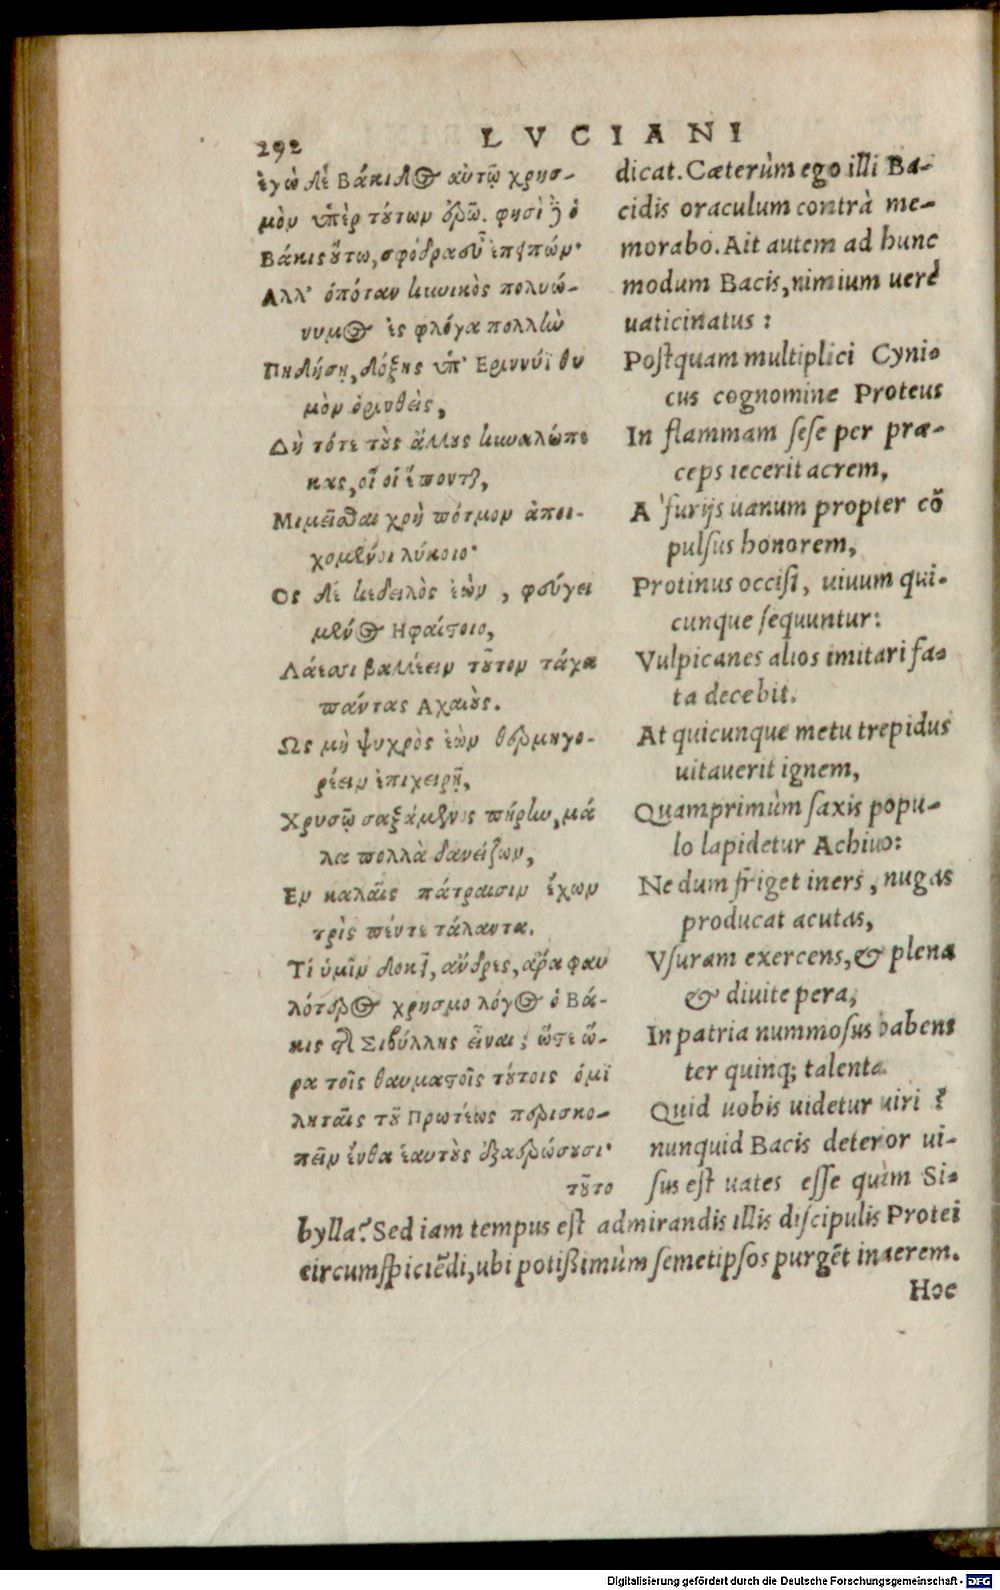 292 LVCIANI
ἐγὼ δὲ Βάκιδος αὐτῷ χρησ-
μὸν ὑπὲρ τούτων ἐρῶ. φησὶ δὲ ὁ
Βάκις οὕτω, σφόδρα εὖ ἐπειπών·
Αλλ' ὁπόταν κυνικὸς πολυώ-
νυμος ἐς φλόγα πολλὴν
Πηδήσῃ, δόξης ὑπ' Ερινύϊ θυ
μὸν ὀρινθεὶς,
Δὴ τότε τοὺς ἄλλους κυναλώπε
κας, οἵ οἱ ἕπονται,
Μιμεῖσθαι χρὴ πότμον ἀποι-
χομένοι λύκοιο·
Ος δέ κε δειλὸς ἐὼν, φεύγει
μένος Ηφαίστοιο,
Λάεσσι βαλέειν τοῦτον τάχα
πάντας Αχαιούς.
Ως μὴ ψυχρὸς ἐὼν θερμηγο-
ρέειν ἐπιχειρῇ,
Χρυσῷ σαξάμενος πήρην, μά
λα πολλὰ δανείζων,
Εν καλαῖς πάτραισιν ἔχων
τρὶς πέντε τάλαντα.
Τί ὑμῖν δοκεῖ, ἄνδρες, ἆρα φαυ
λότερος χρησμολόγος ὁ Βά-
κις τῆς Σιβύλλης εἶναι; ὥστε ὥ-
ρα τοῖς θαυμαστοῖς τούτοις ὁμι
ληταῖς τοῦ Πρωτέως περισκο-
πεῖν ἔνθα ἑαυτοὺς ἐξαερώσουσι·
τοῦτο
dicat. Cæterùm ego illi Ba-
cidis oraculum contrà me-
morabo. Ait autem ad hunc
modum Bacis, nimium uerè
uaticinatus:
Postquam multiplici Cyni-
cus cognomine Proteus
In flammam sese per præ-
ceps iecerit acrem,
A furijs uanum propter cō
pulsus honorem,
Protinus occisi, uiuum qui-
cunque sequuntur:
Vulpicanes alios imitari fa-
ta decebit.
At quicunque metu trepidus
uitauerit ignem,
Quamprimùm saxis popu-
lo lapidetur Achiuo:
Ne dum friget iners, nugas
producat acutas,
Vsuram exercens, & plena
& diuite pera,
In patria nummosus habens
ter quinq; talenta.
Quid uobis uidetur uiri?
nunquid Bacis deterior ui-
sus est uates esse quàm Si-
bylla? Sed iam tempus est admirandis illis discipulis Protei
circumspiciēdi, ubi potißimùm semetipsos purgēt in aerem.
Hoc
Digitalisierung gefördert durch die Deutsche Forschungsgemeinschaft - DFG